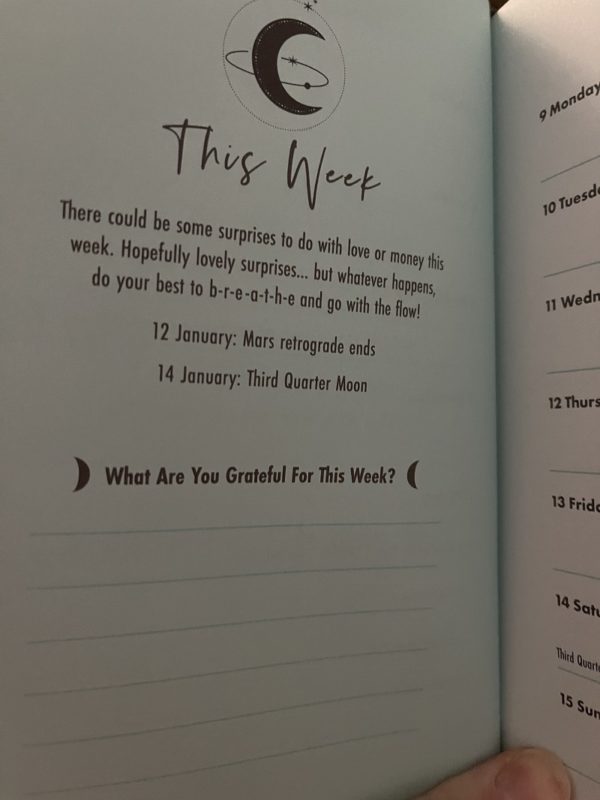 This Week
There could be some surprises to do with love or money this
week. Hopefully lovely surprises... but whatever happens,
do your best to b-r-e-a-t-h-e and go with the flow!
12 January: Mars retrograde ends
14 January: Third Quarter Moon
What Are You Grateful For This Week?
9 Monday
10 Tuesd
11 Wedn
12 Thurs
13 Frida
14 Satu
Third Quart
15 Sun